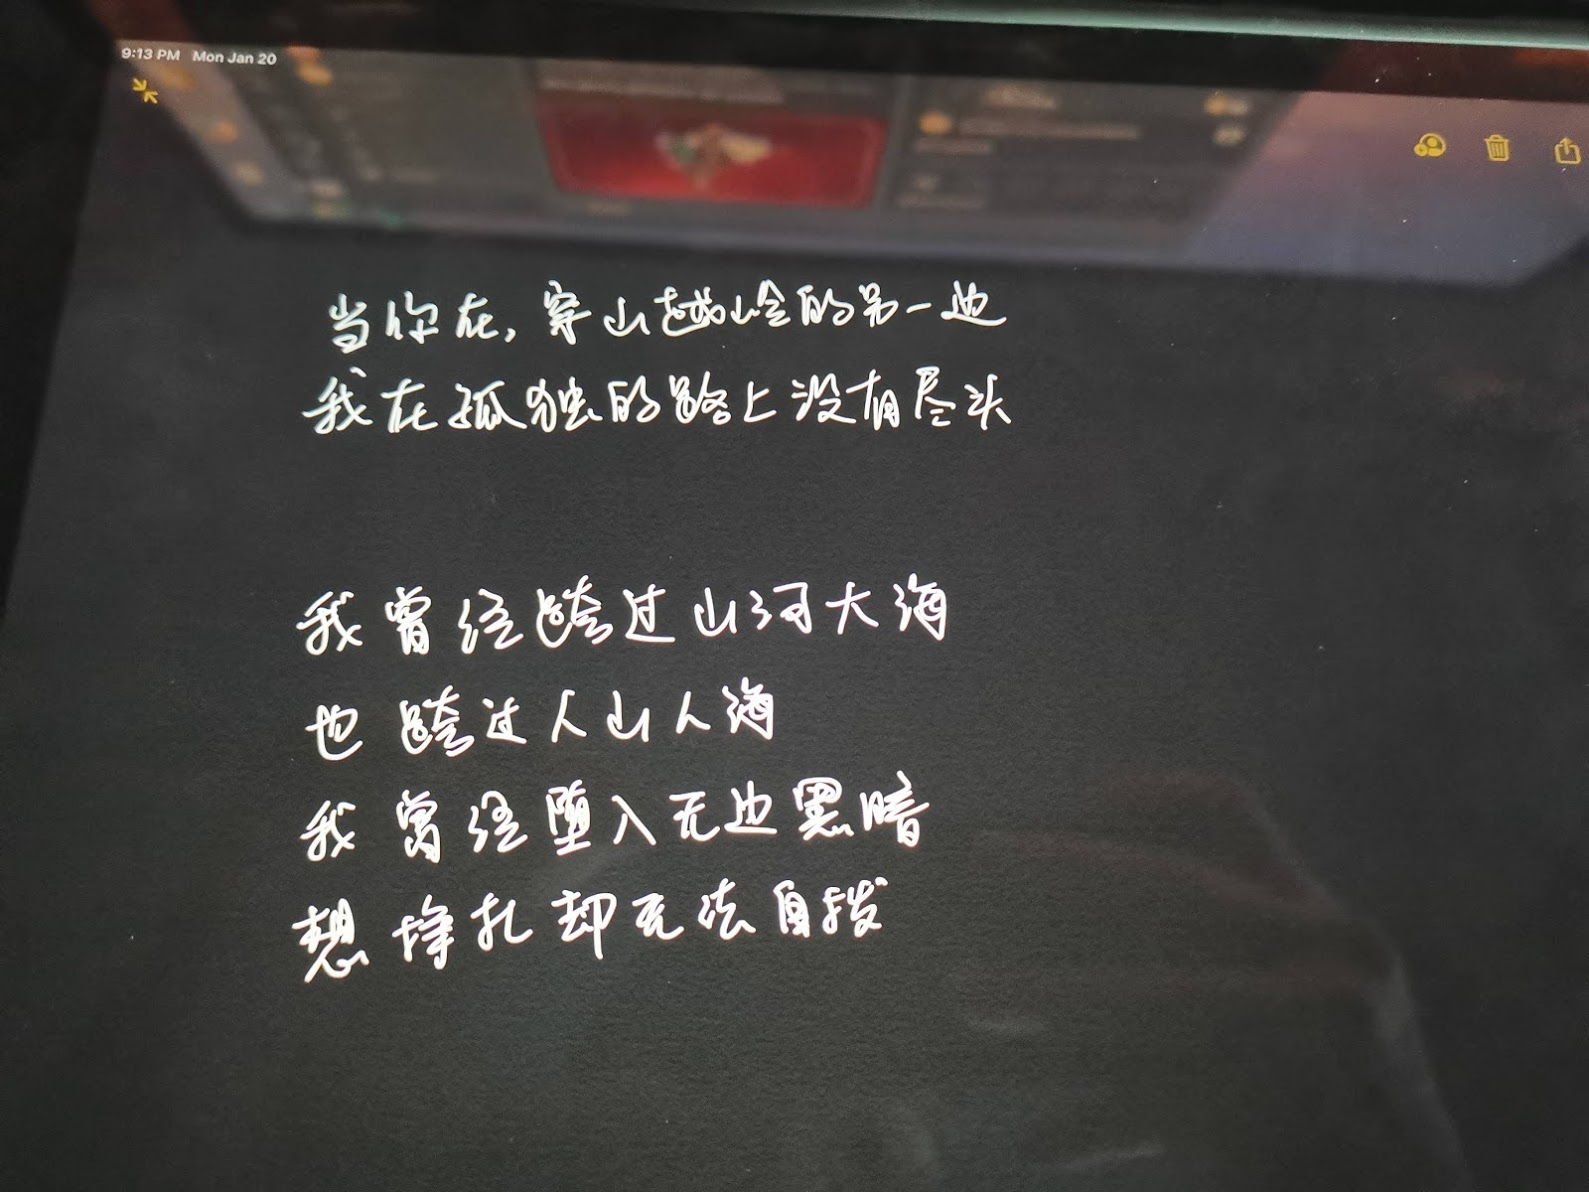 9:13 PM Mon Jan 20
当你在,穿山越岭的另一边
我在孤独的路上没有尽头
我曾经跨过山河大海
也跨过人山人海
我曾经堕入无边黑暗
想挣扎却无法自拨